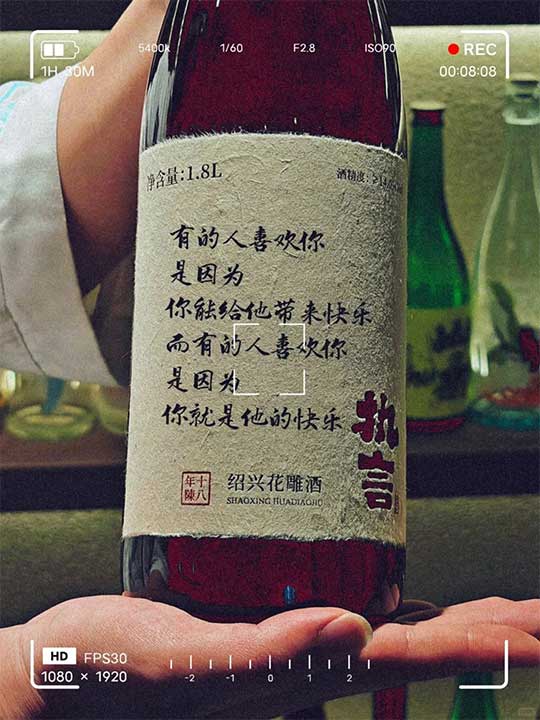 5400k 1/60 F2.8 ISO90 REC
1H 30M 00:08:08
净含量:1.8L
酒精度:
有的人喜欢你
是因为
你能给他带来快乐
而有的人喜欢你
是因为
你就是他的快乐
执言
十八年陳
绍兴花雕酒
SHAOXING HUADIAOJIU
HD FPS30
1080 × 1920
-2 -1 0 1 2